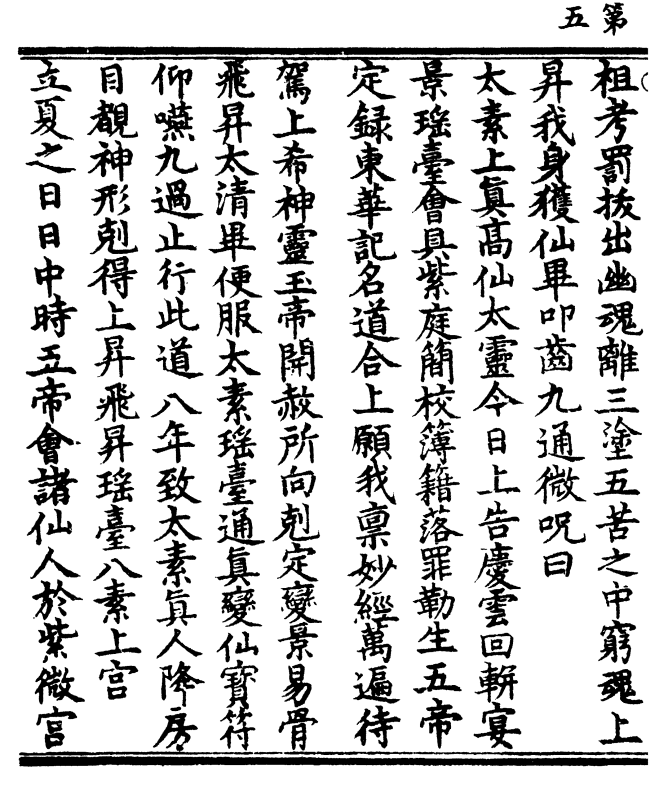 第五
祖考罰拔出幽魂離三塗五苦之中窮魂上
昇我身獲仙畢叩齒九通微呪曰
太素上眞高仙太靈今日上告慶雲回軿宴
景瑶臺會具紫庭簡校簿籍落罪勒生五帝
定録東華記名道合上願我禀妙經萬遍待
駕上希神靈玉帝開赦所向剋定變景易骨
飛昇太清畢便服太素瑶臺通眞變仙寶符
仰嚥九過止行此道八年致太素眞人降房
目覩神形剋得上昇飛昇瑶臺八素上宫
立夏之日日中時五帝會諸仙人於紫微宫